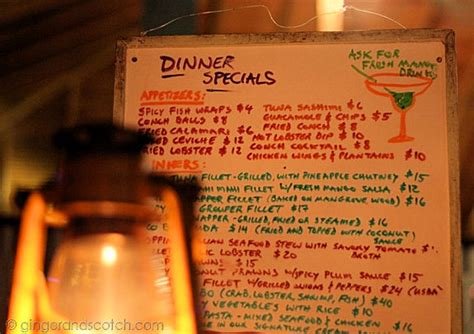 DINNER SPECIALS
ASK FOR FRESH MANGO DRINK
APPETIZERS:
SPICY FISH WRAPS $4
CONCH BALLS $8
FRIED CALAMARI $6
CEVICHE $12
FRIED LOBSTER $12
TUNA SASHIMI $6
GUACAMOLE & CHIPS $5
FRIED CONCH $8
HOT LOBSTER DIP $10
CONCH COCKTAIL $8
CHICKEN WINGS & PLANTAINS $10
DINNERS:
TUNA FILLET - GRILLED, WITH PINEAPPLE CHUTNEY $15
FILLET W/FRESH MANGO SALSA $12
FILLET (BAKED ON MANGROVE WOOD) $16
GROUPER FILLET $17
SNAPPER - GRILLED, FRIED OR STEAMED $16
$14 (FRIED AND TOPPED WITH COCONUT SAUCE
SEAFOOD STEW WITH SAVORY TOMATO BROTH
LOBSTER $20
PRAWNS W/SPICY PLUM SAUCE $15
FILLET W/GRILLED ONIONS & PEPPERS $24 (USDA
(CRAB, LOBSTER, SHRIMP, FISH) $40
VEGETABLES WITH RICE $10
PASTA - MIXED SEAFOOD & CHICKEN
IN OUR SIGNATURE CREAM
© gingerandscotch.com